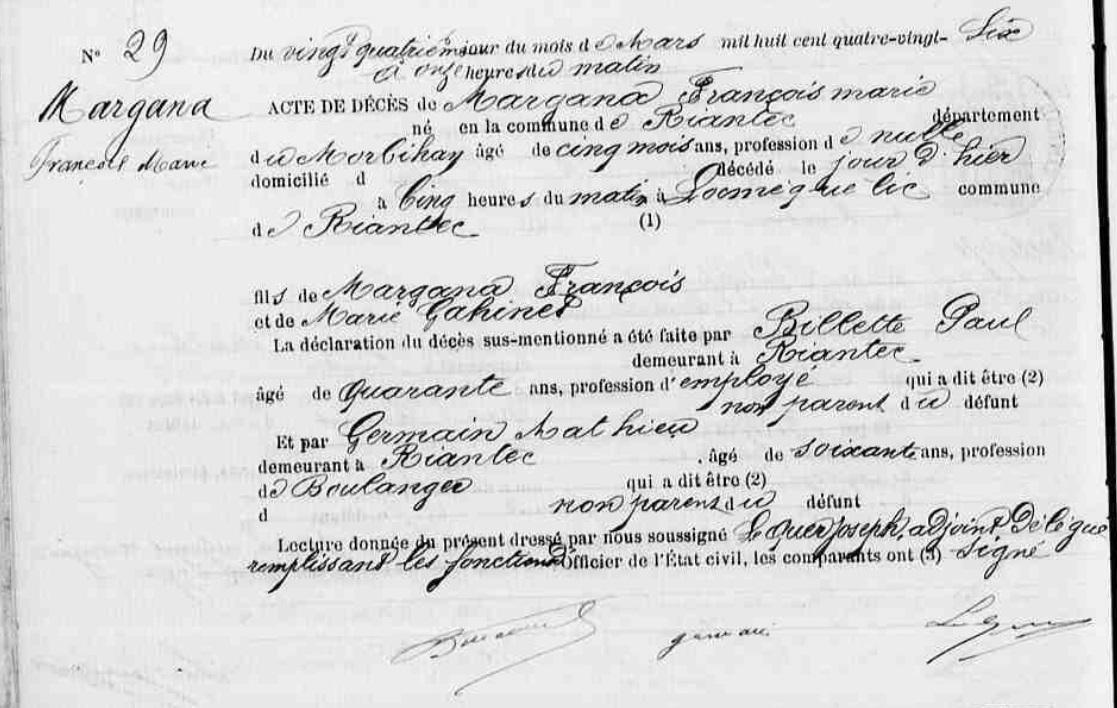 N° 29
Du vingt quatrième jour du mois de Mars mil huit cent quatre-vingt- Six
à onze heures du matin
Margana
François Marie
ACTE DE DÉCÈS de Margana François marie
né en la commune de Riantec département
du Morbihan âgé de cinq mois ans, profession de nulle
domicilié d décédé le jour d'hier
à Cinq heures du matin à Locméquélic commune
de Riantec (1)
fils de Margana François
et de Marie Cahinet
La déclaration du décès sus-mentionné a été faite par Billette Paul
demeurant à Riantec
âgé de quarante ans, profession d'employé qui a dit être (2)
non parent du défunt
Et par Germain Mathieu
demeurant à Riantec âgé de soixante ans, profession
de Boulanger qui a dit être (2)
d non parent du défunt
Lecture donnée du présent dressé par nous soussigné Le Quer Joseph, adjoint Délégué
remplissant les fonctions d'Officier de l'État civil, les comparants ont (3) signé